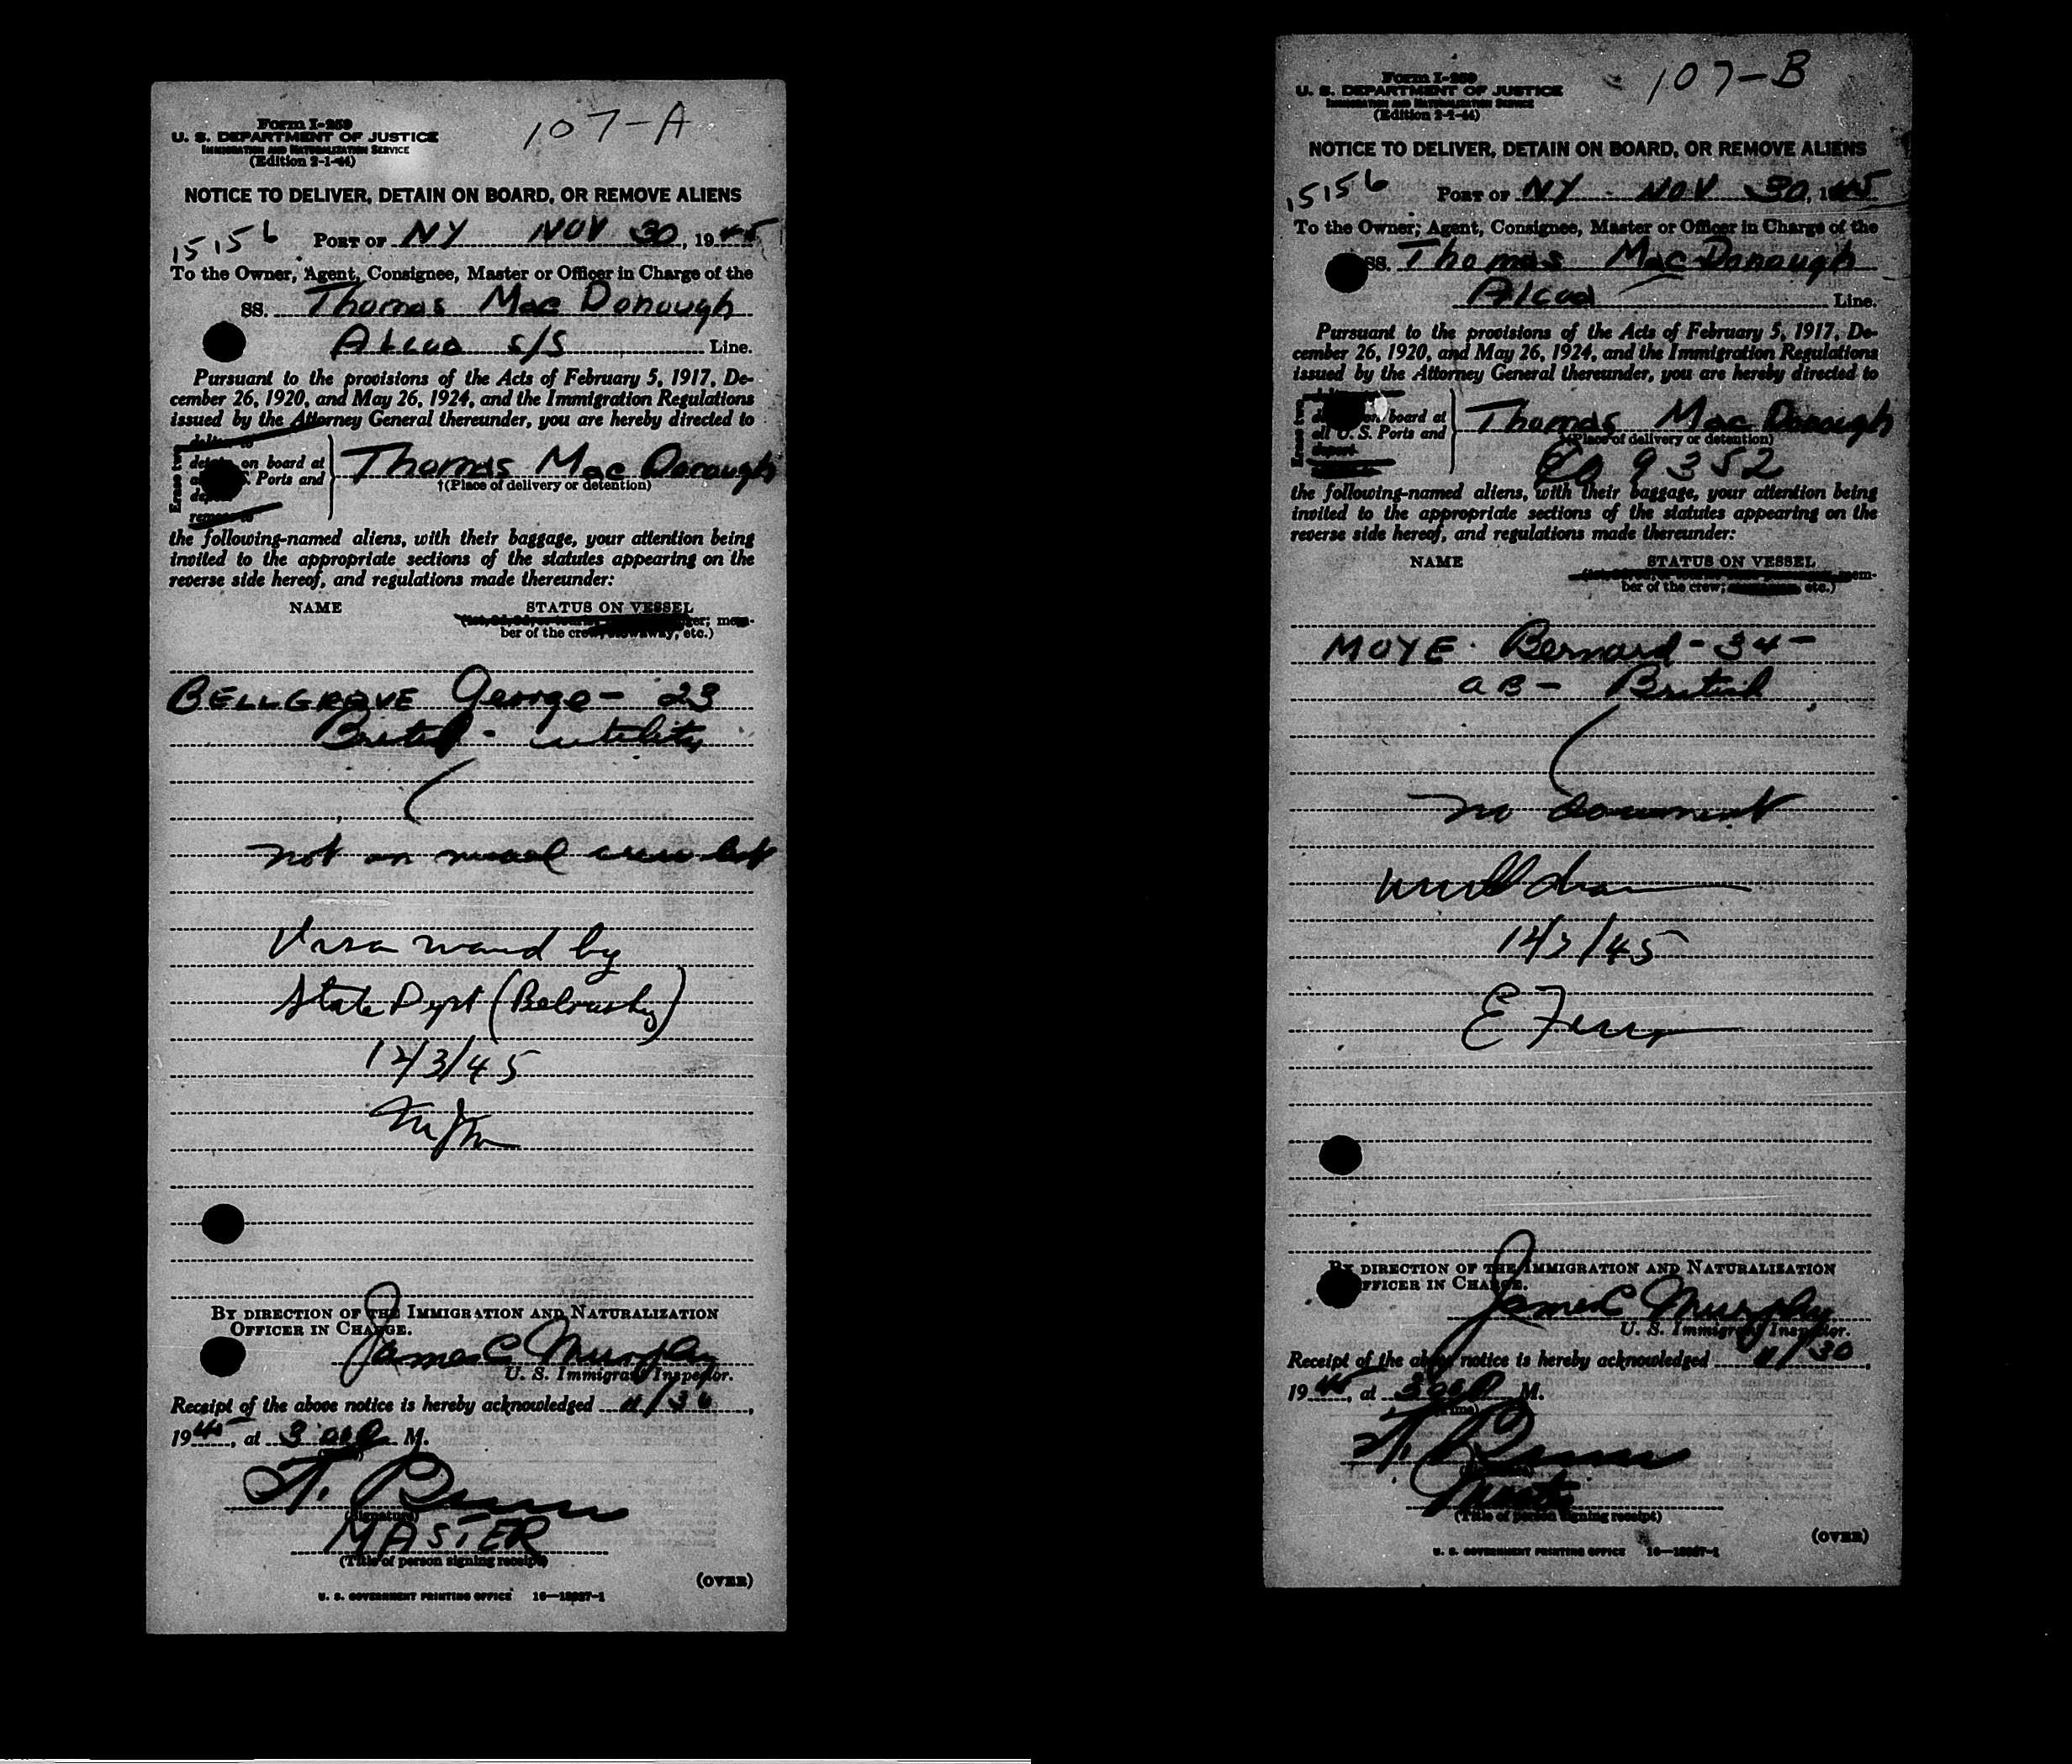 107-A
Form I-259
U. S. DEPARTMENT OF JUSTICE
IMMIGRATION AND NATURALIZATION SERVICE
(Edition 2-1-44)
NOTICE TO DELIVER, DETAIN ON BOARD, OR REMOVE ALIENS
15156 PORT OF NY NOV 30, 1945
To the Owner, Agent, Consignee, Master or Officer in Charge of the
SS. Thomas Mac Donough
Alcoa S/S Line.
Pursuant to the provisions of the Acts of February 5, 1917, De-
cember 26, 1920, and May 26, 1924, and the Immigration Regulations
issued by the Attorney General thereunder, you are hereby directed to
Erase two
deliver to
detain on board at
Ports and
remove to
Thomas Mac Donough
†(Place of delivery or detention)
the following-named aliens, with their baggage, your attention being
invited to the appropriate sections of the statutes appearing on the
reverse side hereof, and regulations made thereunder:
NAME STATUS ON VESSEL
ger; mem-
ber of the crew, stowaway, etc.)
BELLGROVE George - 23
British - utility
not on visaed crew list
Visa waived by
State Dept
12/3/45
BY DIRECTION OF THE IMMIGRATION AND NATURALIZATION
OFFICER IN CHARGE.
James C Murphy
U. S. Immigrant Inspector.
Receipt of the above notice is hereby acknowledged 11/30,
1945, at 3 00 P M.
(Signature)
MASTER
(Title of person signing receipt)
(OVER)
U. S. GOVERNMENT PRINTING OFFICE 16—13337-1
107-B
Form I-259
U. S. DEPARTMENT OF JUSTICE
IMMIGRATION AND NATURALIZATION SERVICE
(Edition 2-1-44)
NOTICE TO DELIVER, DETAIN ON BOARD, OR REMOVE ALIENS
15156 PORT OF NY NOV 30, 1945
To the Owner, Agent, Consignee, Master or Officer in Charge of the
SS. Thomas Mac Donough
Alcoa Line.
Pursuant to the provisions of the Acts of February 5, 1917, De-
cember 26, 1920, and May 26, 1924, and the Immigration Regulations
issued by the Attorney General thereunder, you are hereby directed to
Erase two
on board at
all U. S. Ports and
deport
Thomas Mac Donough
†(Place of delivery or detention)
9352
the following-named aliens, with their baggage, your attention being
invited to the appropriate sections of the statutes appearing on the
reverse side hereof, and regulations made thereunder:
NAME STATUS ON VESSEL
mem-
ber of the crew; etc.)
MOYE Bernard - 34 -
AB - British
no document
Withdrawn
12/3/45
BY DIRECTION OF THE IMMIGRATION AND NATURALIZATION
OFFICER IN CHARGE.
James C Murphy
U. S. Immigrant Inspector.
Receipt of the above notice is hereby acknowledged 11/30,
1945, at 3 00 P M.
(Time)
Master
(Title of person signing receipt)
(OVER)
U. S. GOVERNMENT PRINTING OFFICE 16—13337-1